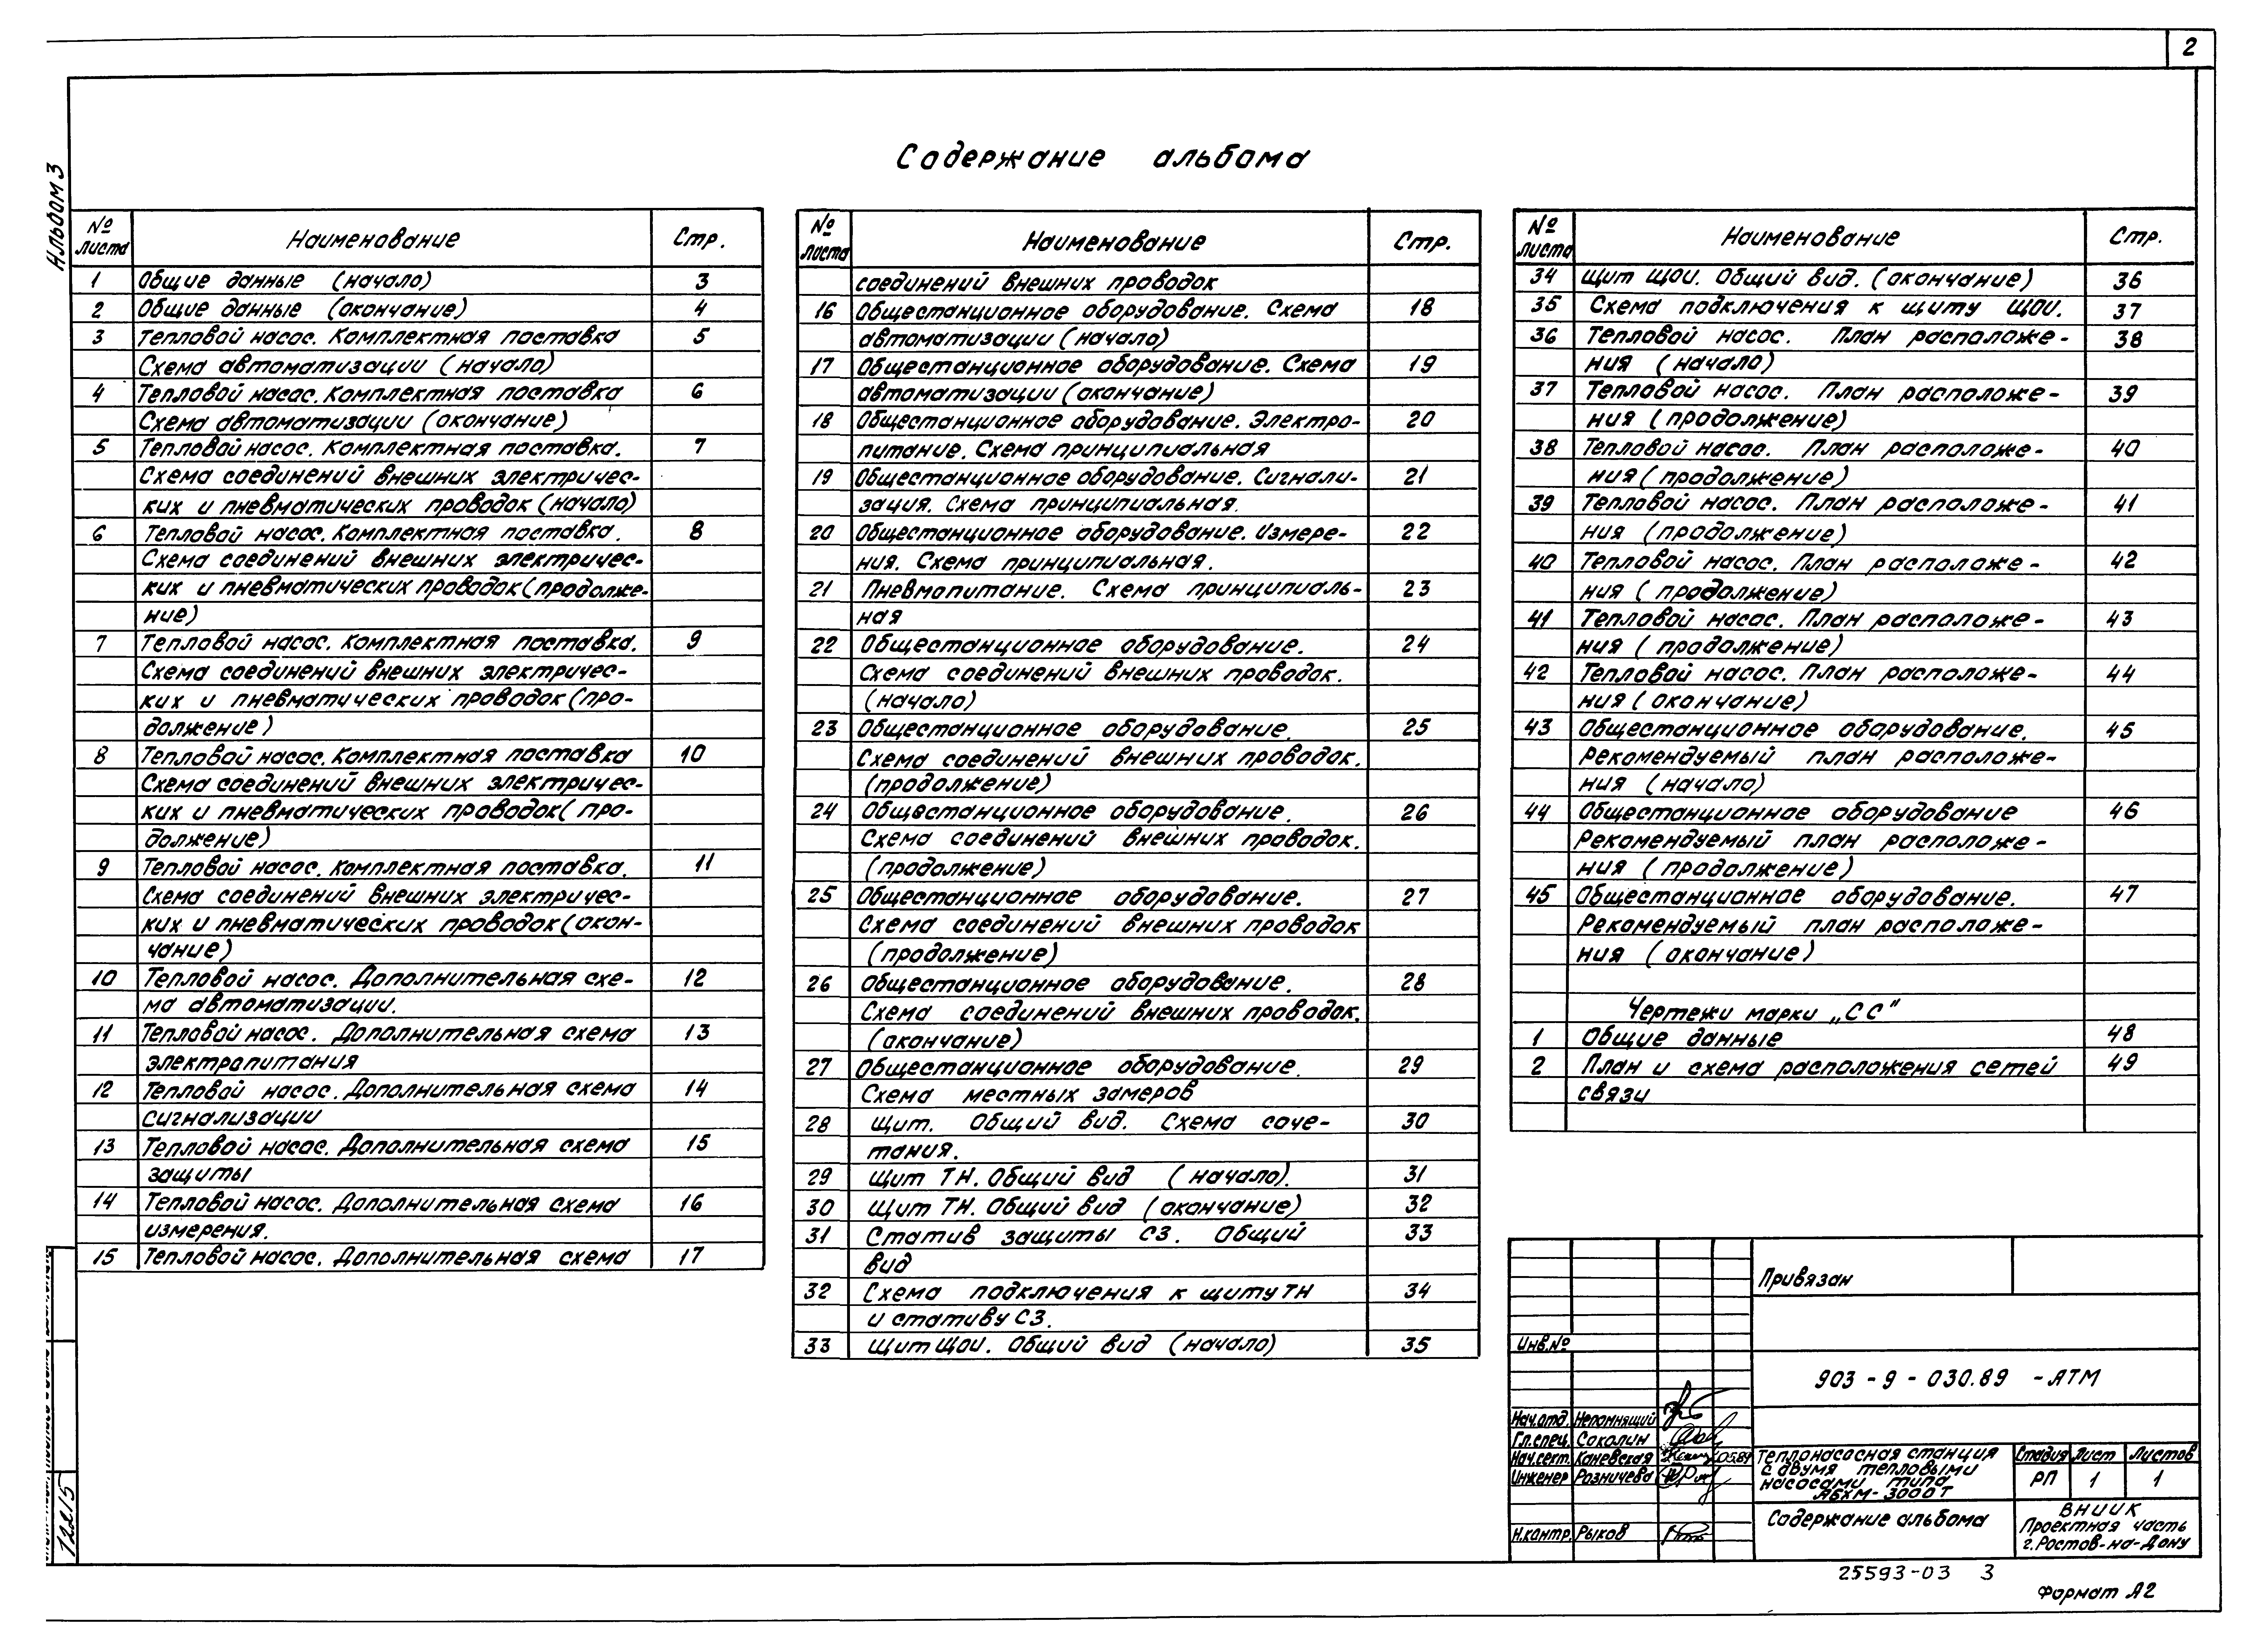 2
Альбом 3
Содержание альбома
№ листа Наименование Стр.
1 Общие данные (начало) 3
2 Общие данные (окончание) 4
3 Тепловой насос. Комплектная поставка 5
Схема автоматизации (начало)
4 Тепловой насос. Комплектная поставка 6
Схема автоматизации (окончание)
5 Тепловой насос. Комплектная поставка. 7
Схема соединений внешних электричес-
ких и пневматических проводок (начало)
6 Тепловой насос. Комплектная поставка. 8
Схема соединений внешних электричес-
ких и пневматических проводок (продолже-
ние)
7 Тепловой насос. Комплектная поставка. 9
Схема соединений внешних электричес-
ких и пневматических проводок (про-
должение)
8 Тепловой насос. Комплектная поставка 10
Схема соединений внешних электричес-
ких и пневматических проводок (про-
должение)
9 Тепловой насос. Комплектная поставка. 11
Схема соединений внешних электричес-
ких и пневматических проводок (окон-
чание)
10 Тепловой насос. Дополнительная схе- 12
ма автоматизации.
11 Тепловой насос. Дополнительная схема 13
электропитания
12 Тепловой насос. Дополнительная схема 14
сигнализации
13 Тепловой насос. Дополнительная схема 15
защиты
14 Тепловой насос. Дополнительная схема 16
измерения.
15 Тепловой насос. Дополнительная схема 17
№ листа Наименование Стр.
соединений внешних проводок
16 Общестанционное оборудование. Схема 18
автоматизации (начало)
17 Общестанционное оборудование. Схема 19
автоматизации (окончание)
18 Общестанционное оборудование. Электро- 20
питание. Схема принципиальная
19 Общестанционное оборудование. Сигнали- 21
зация. Схема принципиальная.
20 Общестанционное оборудование. Измере- 22
ния. Схема принципиальная.
21 Пневмопитание. Схема принципиаль- 23
ная
22 Общестанционное оборудование. 24
Схема соединений внешних проводок.
(начало)
23 Общестанционное оборудование. 25
Схема соединений внешних проводок.
(продолжение)
24 Общестанционное оборудование. 26
Схема соединений внешних проводок.
(продолжение)
25 Общестанционное оборудование. 27
Схема соединений внешних проводок
(продолжение)
26 Общестанционное оборудование. 28
Схема соединений внешних проводок.
(окончание)
27 Общестанционное оборудование. 29
Схема местных замеров
28 Щит. Общий вид. Схема соче- 30
тания.
29 Щит ТН. Общий вид (начало). 31
30 Щит ТН. Общий вид (окончание) 32
31 Статив защиты СЗ. Общий 33
вид
32 Схема подключения к щиту ТН 34
и стативу СЗ.
33 Щит ЩОИ. Общий вид (начало) 35
№ листа Наименование Стр.
34 Щит ЩОИ. Общий вид. (окончание) 36
35 Схема подключения к щиту ЩОИ. 37
36 Тепловой насос. План расположе- 38
ния (начало)
37 Тепловой насос. План расположе- 39
ния (продолжение)
38 Тепловой насос. План расположе- 40
ния (продолжение)
39 Тепловой насос. План расположе- 41
ния (продолжение)
40 Тепловой насос. План расположе- 42
ния (продолжение)
41 Тепловой насос. План расположе- 43
ния (продолжение)
42 Тепловой насос. План расположе- 44
ния (окончание)
43 Общестанционное оборудование. 45
Рекомендуемый план расположе-
ния (начало)
44 Общестанционное оборудование 46
Рекомендуемый план расположе-
ния (продолжение)
45 Общестанционное оборудование. 47
Рекомендуемый план расположе-
ния (окончание)
Чертежи марки „СС"
1 Общие данные 48
2 План и схема расположения сетей 49
связи
Привязан
Инв.№
903-9-030.89 -АТМ
Нач.отд. Непомнящий
Гл.спец. Соколин
Нач.сект. Каневская 05.89
Инженер Розничева
Н.контр. Рыков
Теплонасосная станция
с двумя тепловыми
насосами типа
АБХМ-3000Т
Стадия Лист Листов
РП 1 1
Содержание альбома
ВНИИК
Проектная часть
г.Ростов-на-Дону
25593-03 3
Формат А2
122/5